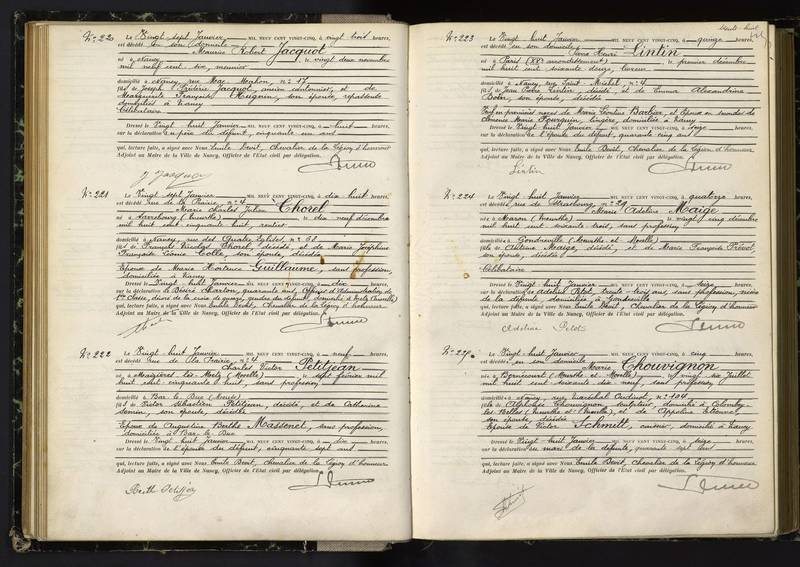 No 22
Le Vingt sept Janvier MIL NEUF CENT VINGT-CINQ, à vingt trois heures,
est décédé en son domicile
Maurice Robert Jacquot
né à Nancy le vingt deux novembre
mil neuf cent six, meunier
domicilié à Nancy, rue Mac Mahon, no 17
fils de Joseph Frédéric Jacquot, ancien cantonnier, et de
Marguerite Françoise Husquin, son épouse, repassante
domiciliés à Nancy
Célibataire
Dressé le Vingt huit Janvier MIL NEUF CENT VINGT-CINQ, à huit heures,
sur la déclaration du père du défunt, cinquante un ans
qui, lecture faite, a signé avec Nous Emile Devit, Chevalier de la Légion d'honneur
Adjoint au Maire de la Ville de Nancy, Officier de l'Etat civil par délégation.
J Jacquot
No 221
Le Vingt sept Janvier MIL NEUF CENT VINGT-CINQ, à dix huit heures,
est décédé rue de la Prairie, no 4
Marie Charles Julien Chorel
né à Sarrebourg (Meurthe) le dix neuf décembre
mil huit cent cinquante huit, rentier
domicilié à Nancy, rue des Quatre Eglises, no 58
fils de François Nicolas Chorel, décédé et de Marie Joséphine
Françoise Léonie Colle, son épouse, décédée
Epoux de Marie Hortence Guillaume, sans profession,
domiciliée à Nancy
Dressé le Vingt huit Janvier MIL NEUF CENT VINGT-CINQ, à dix heures,
sur la déclaration de Désiré Charton, quarante ans, Officier d'Administration de
1re Classe, décoré de la croix de guerre, gendre du défunt, domicilié à Metz (Moselle)
qui, lecture faite, a signé avec Nous Emile Devit, Chevalier de la Légion d'honneur
Adjoint au Maire de la Ville de Nancy, Officier de l'Etat civil par délégation.
No 222
Le Vingt huit Janvier MIL NEUF CENT VINGT-CINQ, à neuf heures,
est décédé rue de la Prairie, no 4
Charles Victor Petitjean
né à Maizières les Metz (Moselle) le sept février mil
huit cent cinquante huit, sans profession
domicilié à Bar le Duc (Meuse)
fils de Victor Sébastien Petitjean, décédé, et de Catherine
son épouse, décédée
Epoux de Augustine Berthe Massenet, sans profession,
domiciliée à Bar le Duc
Dressé le Vingt huit Janvier MIL NEUF CENT VINGT-CINQ, à dix heures,
sur la déclaration de l'épouse du défunt, cinquante sept ans
qui, lecture faite, a signé avec Nous Emile Devit, Chevalier de la Légion d'honneur
Adjoint au Maire de la Ville de Nancy, Officier de l'Etat civil par délégation.
Berth Petitjean
No 223
Le Vingt huit Janvier MIL NEUF CENT VINGT-CINQ, à quinze heures,
est décédé en son domicile
Pierre Henri Lintin
né à Paris (XXe arrondissement) le premier décembre
mil huit cent soixante douze,
domicilié à Nancy, rue Saint Michel, no 4
fils de Jean Pierre Lintin, décédé, et de Emma Alexandrine
son épouse, décédée
Veuf en premières noces de Marie Léontine Barbier, et Epoux en secondes de
Clémence Marie Fourquin, lingère, domiciliée à Nancy
Dressé le Vingt huit Janvier MIL NEUF CENT VINGT-CINQ, à seize heures,
sur la déclaration de l'épouse du défunt, quarante cinq ans
qui, lecture faite, a signé avec Nous Emile Devit, Chevalier de la Légion d'honneur
Adjoint au Maire de la Ville de Nancy, Officier de l'Etat civil par délégation.
Lintin
No 224
Le Vingt huit Janvier MIL NEUF CENT VINGT-CINQ, à quatorze heures,
est décédée rue de Strasbourg, no 29
Marie Adeline Maige
née à Maron (Meurthe) le vingt cinq décembre
mil huit cent soixante trois, sans profession
domiciliée à Gondreville (Meurthe et Moselle)
fille de Antoine Maige, décédé, et de Marie Françoise Prévot
son épouse, décédée
Célibataire
Dressé le Vingt huit Janvier MIL NEUF CENT VINGT-CINQ, à seize heures,
sur la déclaration de Adeline Petot, trente trois ans, sans profession, nièce
de la défunte, domiciliée à Gondreville
qui, lecture faite, a signé avec Nous Emile Devit, Chevalier de la Légion d'honneur
Adjoint au Maire de la Ville de Nancy, Officier de l'Etat civil par délégation.
Adeline Petot
No 225
Le Vingt huit Janvier MIL NEUF CENT VINGT-CINQ, à cinq heures,
est décédée en son domicile
Marie Chouvignon
née à Bernécourt (Meurthe et Moselle) le vingt six juillet
mil huit cent soixante dix neuf, sans profession
domiciliée à Nancy, rue Maréchal Oudinot, no 104
fille de Alphonse Chouvignon, sculpteur, domicilié à Colombey
les Belles (Meurthe et Moselle), et de Appoline
son épouse, décédée
Epouse de Victor Schmitt, domicilié à Nancy
Dressé le Vingt huit Janvier MIL NEUF CENT VINGT-CINQ, à seize heures,
sur la déclaration du mari de la défunte, quarante sept ans
qui, lecture faite, a signé avec Nous Emile Devit, Chevalier de la Légion d'honneur
Adjoint au Maire de la Ville de Nancy, Officier de l'Etat civil par délégation.